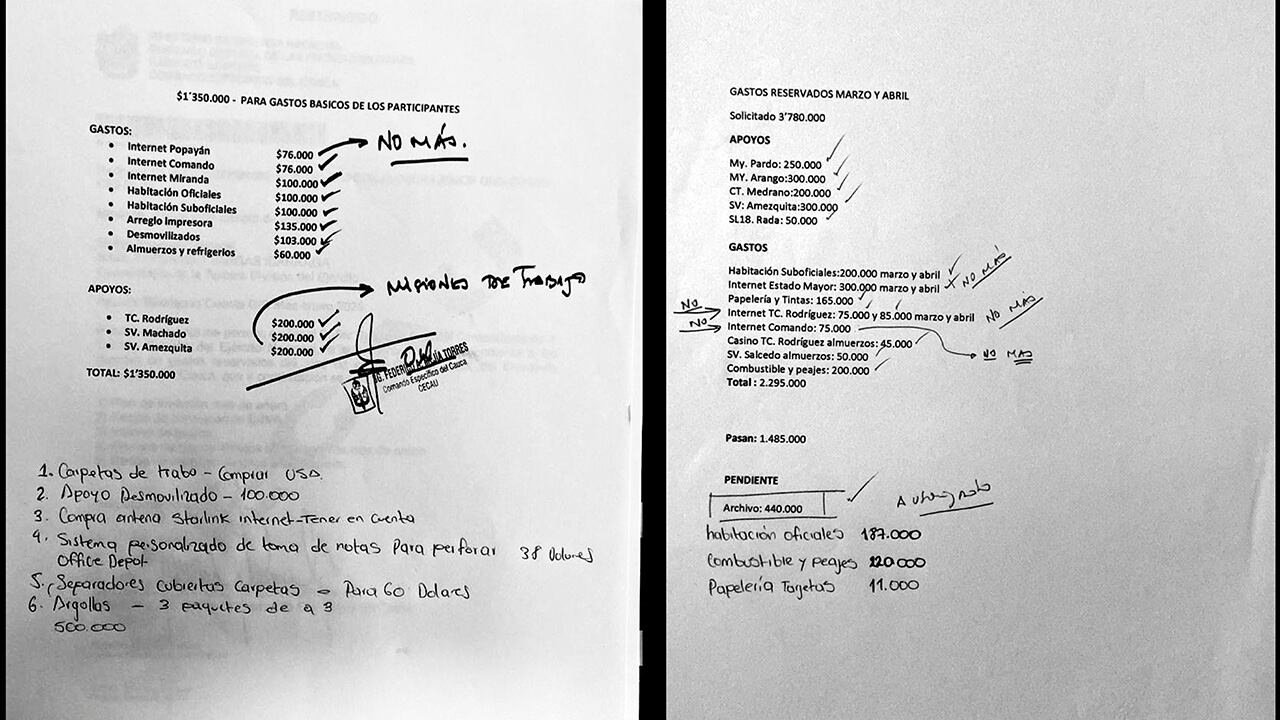 $1'350.000 - PARA GASTOS BASICOS DE LOS PARTICIPANTES
GASTOS:
• Internet Popayán $76.000
• Internet Comando $76.000
• Internet Miranda $100.000
• Habitación Oficiales $100.000
• Habitación Suboficiales $100.000
• Arreglo Impresora $135.000
• Desmovilizados $103.000
• Almuerzos y refrigerios $60.000
NO MÁS.
APOYOS:
• TC. Rodríguez $200.000
• SV. Machado $200.000
• SV. Amezquita $200.000
MISIONES DE TRABAJO
TOTAL: $1'350.000
TORRES
Comando Específico del Cauca
CECAU
1. Carpetas de trabo - Comprar USA.
2. Apoyo Desmovilizado - 100.000
3. Compra antena Starlink internet-Tener en cuenta
4. Sistema personalizado de toma de notas Para perforar 38 Dolores
Office Depot
5. Separadores cubiertas carpetas - Para 60 Dolares
6. Argollas - 3 paquetes de a 3
500.000
GASTOS RESERVADOS MARZO Y ABRIL
Solicitado 3'780.000
APOYOS
My. Pardo: 250.000
MY. Arango:300.000
CT. Medrano:200.000
SV: Amezquita:300.000
SL18. Rada: 50.000
GASTOS
Habitación Suboficiales:200.000 marzo y abril
Internet Estado Mayor: 300.000 marzo y abril NO MÁS
Papelería y Tintas: 165.000
NO Internet TC. Rodríguez: 75.000 y 85.000 marzo y abril NO MÁS
NO Internet Comando: 75.000 NO MAS
Casino TC. Rodríguez almuerzos: 45.000
SV. Salcedo almuerzos: 50.000
Combustible y peajes: 200.000
Total : 2.295.000
Pasan: 1.485.000
PENDIENTE
Archivo: 440.000
habitación oficiales 187.000
Combustible y peajes 120.000
Papelería Tarjetas 11.000